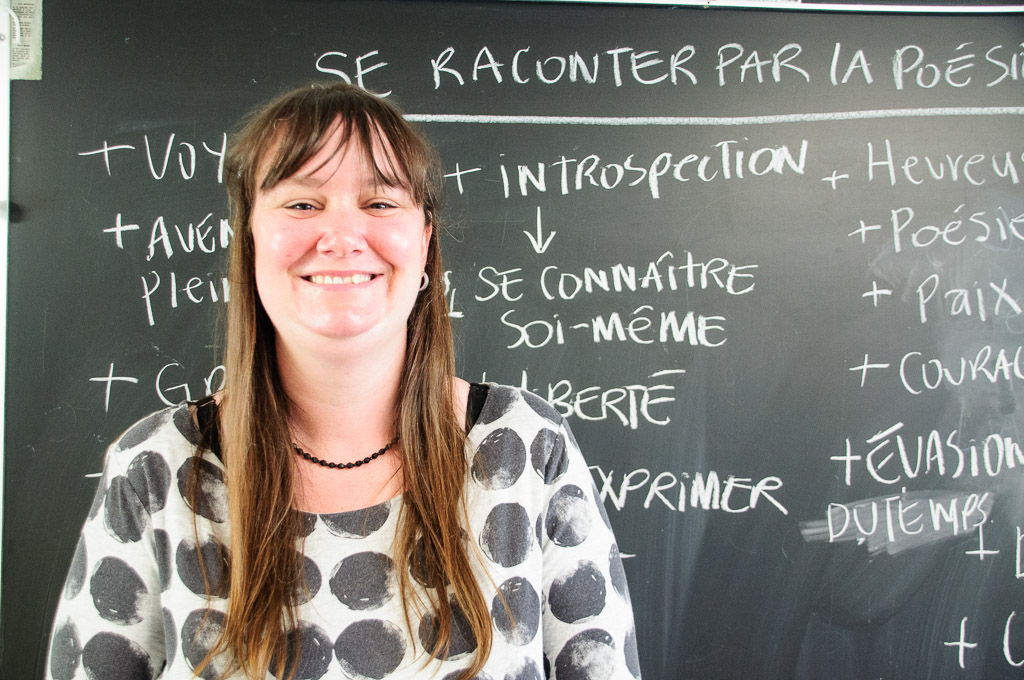 SE RACONTER PAR LA POÉSI
+ VOY
+ AVEN
plein
+ GR
+ INTROSPECTION
↓
SE CONNAÎTRE
SOI-MÊME
BERTÉ
XPRIMER
+ Heureu
+ Poésie
+ Paix
+ COURAG
+ ÉVASION
DU TEMPS
+
+